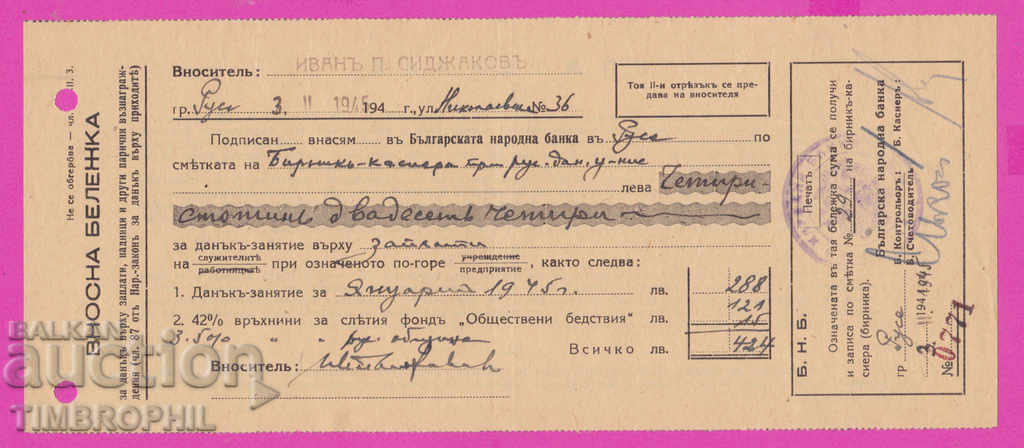 Не се обгербва — чл.
П. 3.
ВНОСНА БЕЛЕЖКА
за данъкъ върху заплати, надници и други парични възнаграж-
дения (чл. 87 отъ Нар.-законъ за данъкъ върху приходитѣ)
Вноситель: ИВАНЪ П. СИДЖАКОВЪ
Тоя II-и отрѣзъкъ се пре-
дава на вносителя
гр. Русе 3. II 1945 194 г., ул. Николаевска № 36
Подписан внасям въ Българската народна банка въ Русе по
смѣтката на Бирникъ-касиера при рус. дан. у-ние
лева Четири-
стотинъ двадесетъ четири
за данъкъ-занятие върху заплати
на служителитѣ работницитѣ при означеното по-горе учреждение предприятие, както следва:
1. Данъкъ-занятие за Януарий 1945 г. лв. 288
121
2. 42% връхнини за слѣтия фондъ „Обществени бедствия" лв. 15
3. 5% " " община
Всичко лв. 424
Вноситель:
Б. Н. Б.
Печатъ
Означената въ тая бележка сума се получи
и записа по смѣтка № 29 на бирникъ-ка-
сиера (бирника).
Българска народна банка
гр Русе 3. II 1941 1945
Б. Контрольоръ: Б. Касиеръ:
Б. Счетоводитель:
№ 0771
BALKAN
auction
TIMBROPHIL